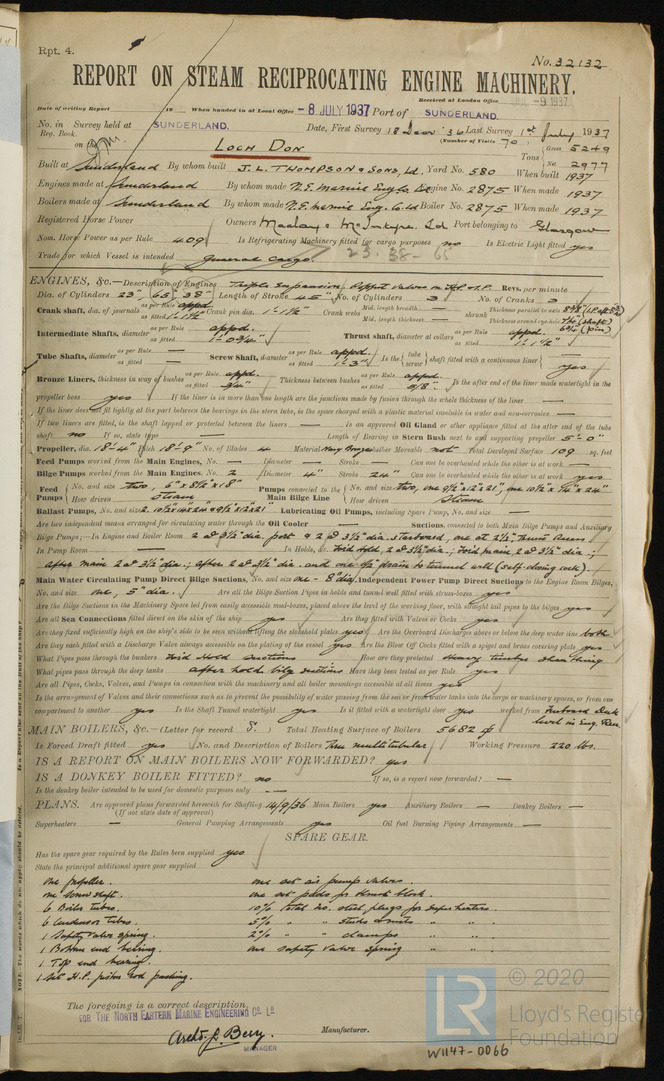 Rpt. 4.
No. 32132
REPORT ON STEAM RECIPROCATING ENGINE MACHINERY.
Received at London Office JUL -9 1937
Date of writing Report 19 When handed in at Local Office -8 JULY 1937 Port of SUNDERLAND.
No. in Survey held at SUNDERLAND. Date, First Survey 18 '36 Last Survey 1st July 1937
Reg. Book. (Number of Visits 70)
on the LOCH DON Tons Gross 5249 Net 2977
Built at Sunderland By whom built J. L. THOMPSON & SONS, Ld. Yard No. 580 When built 1937
Engines made at Sunderland By whom made N. E. Marine Engine No. 2875 When made 1937
Boilers made at Sunderland By whom made N. E. Marine Eng. Co. Ld Boiler No. 2875 When made 1937
Registered Horse Power Owners Maclay & McIntyre, Ld Port belonging to Glasgow
Nom. Horse Power as per Rule 409 Is Refrigerating Machinery fitted for cargo purposes no Is Electric Light fitted yes
Trade for which Vessel is intended General Cargo. 23.38-65
ENGINES, &c.—Description of Engines Triple Expansion, Poppet Valves on H.P. & I.P. Revs. per minute
Dia. of Cylinders 23" 65 38" Length of Stroke 45" No. of Cylinders 3 No. of Cranks 3
Crank shaft, dia. of journals as per Rule appd. as fitted 1'-1½" Crank pin dia. 1'-1½" Crank webs Mid. length breadth — Mid. length thickness — shrunk Thickness parallel to axis Thickness around eye-hole 7¼" (shaft) 6¾" (pin)
Intermediate Shafts, diameter as per Rule appd. as fitted 1'-0¾" Thrust shaft, diameter at collars as per Rule appd. as fitted 1'-1½"
Tube Shafts, diameter as per Rule — as fitted — Screw Shaft, diameter as per Rule appd. as fitted 1'-3" Is the tube screw shaft fitted with a continuous liner yes
Bronze Liners, thickness in way of bushes as per Rule appd. as fitted ¾" Thickness between bushes as per Rule appd. as fitted 5/8" Is the after end of the liner made watertight in the
propeller boss yes If the liner is in more than one length are the junctions made by fusion through the whole thickness of the liner —
If the liner does not fit tightly at the part between the bearings in the stern tube, is the space charged with a plastic material insoluble in water and non-corrosive —
If two liners are fitted, is the shaft lapped or protected between the liners — Is an approved Oil Gland or other appliance fitted at the after end of the tube
shaft no If so, state type — Length of Bearing in Stern Bush next to and supporting propeller 5'-0"
Propeller, dia. 18'-4" Pitch 18'-9" No. of Blades 4 Material Mang Bronze whether Moveable not Total Developed Surface 109 sq. feet
Feed Pumps worked from the Main Engines, No. — Diameter — Stroke — Can one be overhauled while the other is at work —
Bilge Pumps worked from the Main Engines, No. 2 Diameter 4" Stroke 24" Can one be overhauled while the other is at work yes
Feed Pumps No. and size two, 6" x 8½" x 18" How driven Steam Pumps connected to the Main Bilge Line No. and size two, one 9½" x 12" x 21", one 10½" x 14" x 24" How driven Steam
Ballast Pumps, No. and size 2. 10½ x 14 x 24 & 9½ x 12 x 21 Lubricating Oil Pumps, including Spare Pump, No. and size —
Are two independent means arranged for circulating water through the Oil Cooler — Suctions, connected to both Main Bilge Pumps and Auxiliary
Bilge Pumps;—In Engine and Boiler Room 2 @ 3½" dia. port & 2 @ 3½" dia. starboard, one at 2½" Thrust Recess
In Pump Room — In Holds, &c. Ford Hold, 2 @ 3½" dia.; Ford main 2 @ 3½" dia.;
after main 2 @ 3½" dia.; after 2 @ 3½" dia. and one to tunnel well (self-closing cock).
Main Water Circulating Pump Direct Bilge Suctions, No. and size one - 8" dia. Independent Power Pump Direct Suctions to the Engine Room Bilges,
No. and size one, 5" dia. Are all the Bilge Suction Pipes in holds and tunnel well fitted with strum-boxes yes
Are the Bilge Suctions in the Machinery Space led from easily accessible mud-boxes, placed above the level of the working floor, with straight tail pipes to the bilges yes
Are all Sea Connections fitted direct on the skin of the ship yes Are they fitted with Valves or Cocks yes
Are they fixed sufficiently high on the ship's side to be seen without lifting the stokehold plates yes Are the Overboard Discharges above or below the deep water line both
Are they each fitted with a Discharge Valve always accessible on the plating of the vessel yes Are the Blow Off Cocks fitted with a spigot and brass covering plate yes
What Pipes pass through the bunkers Ford hold suctions How are they protected
What pipes pass through the deep tanks after hold bilge suctions Have they been tested as per Rule yes
Are all Pipes, Cocks, Valves, and Pumps in connection with the machinery and all boiler mountings accessible at all times yes
Is the arrangement of Valves and their connections such as to prevent the possibility of water passing from the sea or from water tanks into the cargo or machinery spaces, or from one
compartment to another yes Is the Shaft Tunnel watertight yes Is it fitted with a watertight door yes worked from Freeboard Deck level in Eng. Rm.
MAIN BOILERS, &c.—(Letter for record S.) Total Heating Surface of Boilers 5682
Is Forced Draft fitted yes No. and Description of Boilers Two multitubular Working Pressure 220 lbs.
IS A REPORT ON MAIN BOILERS NOW FORWARDED? yes
IS A DONKEY BOILER FITTED? no If so, is a report now forwarded? —
Is the donkey boiler intended to be used for domestic purposes only —
PLANS. Are approved plans forwarded herewith for Shafting 14/9/36 Main Boilers yes Auxiliary Boilers — Donkey Boilers —
(If not state date of approval)
Superheaters — General Pumping Arrangements yes Oil fuel Burning Piping Arrangements —
SPARE GEAR.
Has the spare gear required by the Rules been supplied yes
State the principal additional spare gear supplied
one propeller. one set air pump valves.
one screw shaft. one set pads for thrust block.
6 Boiler tubes. 10% total no. steel plugs for superheaters.
6 Condenser tubes. 5% " " studs & nuts " "
1 Safety valve spring. 2% " " clamps " "
1 Bottom end bearing. one safety valve spring " "
1 Top end bearing.
1 set H.P. piston rod packing.
The foregoing is a correct description,
FOR THE NORTH EASTERN MARINE ENGINEERING CO. LD.
Archd. J. Berry. Manufacturer.
MANAGER
LR © 2020 Lloyd's Register Foundation
W1147-0066